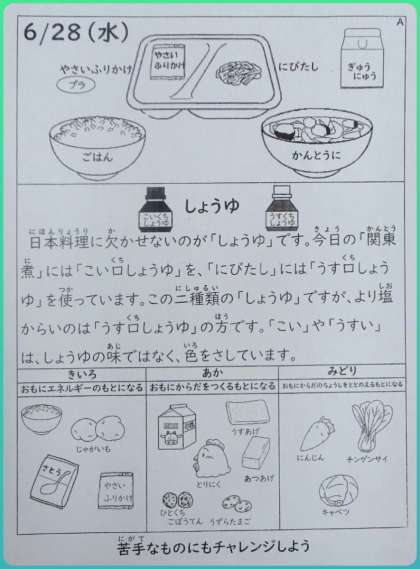 6/28(水)
A
やさいふりかけ
プラ
やさい
ふりかけ
にびたし
ぎゅう
にゅう
ごはん
かんとうに
こいくち
しょうゆ
しょうゆ
うすくち
しょうゆ
日本料理に欠かせないのが「しょうゆ」です。今日の「関東
煮」には「こい口しょうゆ」を、「にびたし」には「うす口しょう
ゆ」を使っています。この二種類の「しょうゆ」ですが、より塩
からいのは「うす口しょうゆ」の方です。「こい」や「うすい」
は、しょうゆの味ではなく、色をさしています。
きいろ
おもにエネルギーのもとになる
じゃがいも
さとう
やさい
ふりかけ
あか
おもにからだをつくるもとになる
うすあげ
とりにく
あつあげ
ひとくち
ごぼうてん
うずらたまご
みどり
おもにからだのちょうしをととのえるもとになる
にんじん
チンゲンサイ
キャベツ
苦手なものにもチャレンジしよう